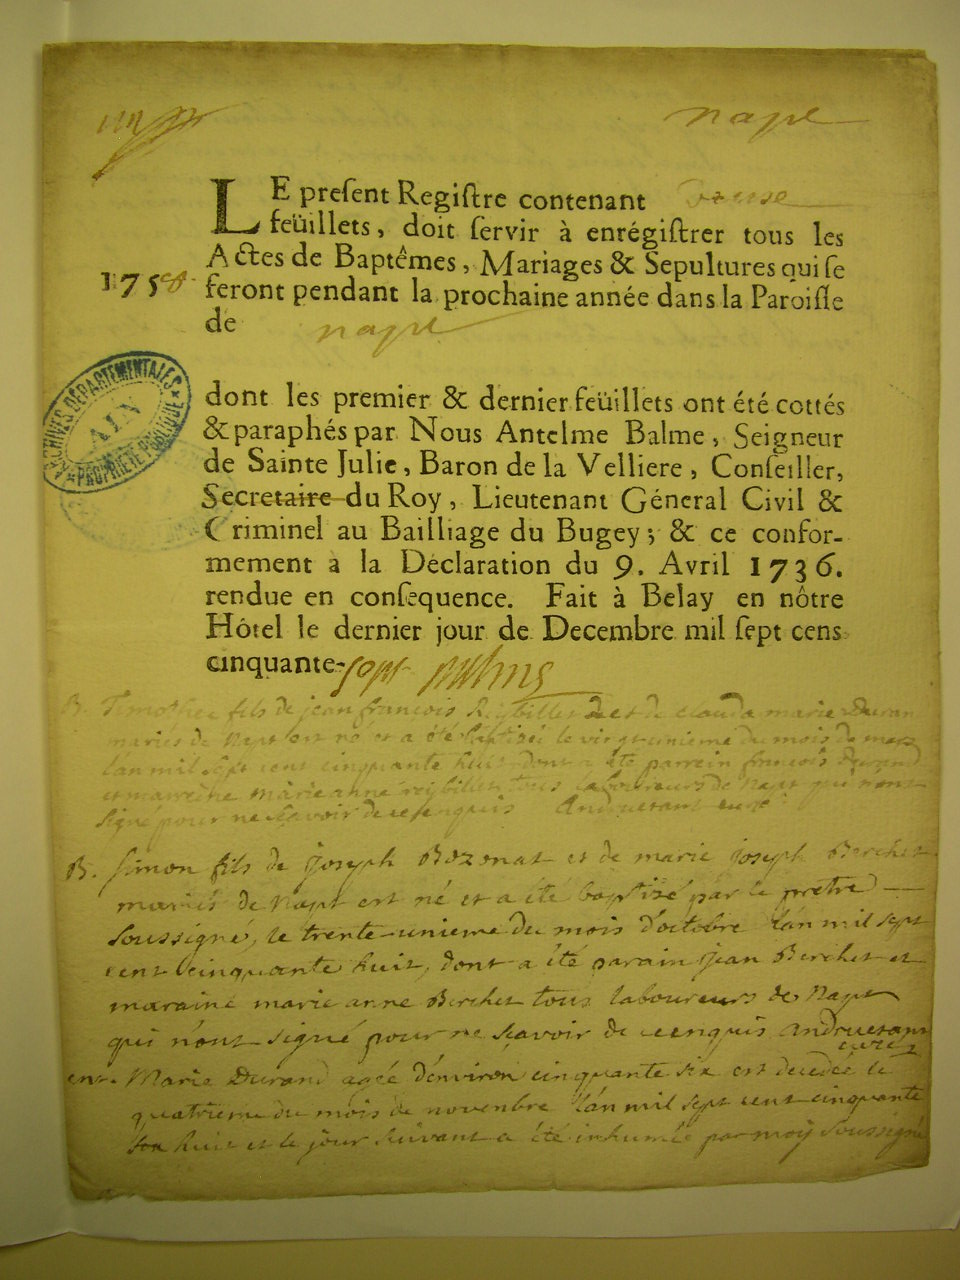 napt
LE preſent Regiſtre contenant douse
feüillets, doit ſervir à enrégiſtrer tous les
Actes de Baptêmes, Mariages & Sepultures qui ſe
1758 feront pendant la prochaine année dans la Paroiſſe
de napt
ARCHIVES DÉPARTEMENTALES
AIN
PROPRIÉTÉ PUBLIQUE
dont les premier & dernier feüillets ont été cottés
& paraphés par Nous Antelme Balme, Seigneur
de Sainte Julie, Baron de la Velliere, Conſeiller,
Secretaire du Roy, Lieutenant Général Civil &
Criminel au Bailliage du Bugey; & ce confor-
mement à la Déclaration du 9. Avril 1736.
rendue en conſequence. Fait à Belay en nôtre
Hôtel le dernier jour de Decembre mil ſept cens
cinquante-sept
B. Timothee fils de jean francois Reybillet et de clauda marie Duran
mariés de Napt est né et a été baptizé le vingt unieme du mois de mars
lan mil sept cent cinquante huit dont a été parrein francois durand
et marreine marie anne reybillet tous laboureurs de Napt qui nont
signé pour ne scavoir de ce enquis Andruetant curé
B. Simon fils de joseph Bozonat et de marie joseph Berchet
mariés de Napt est né et a été baptizé par le pretre
soussigné, le trente-unieme du mois d'octobre l'an mil sept
cent cinquante huit, dont a été parain jean Berchet et
maraine marie anne Berchet tous laboureurs de Napt
qui n'ont signé pour ne scavoir de ce enquis Andruetant
curé
ent. Marie Durand agée d'environ cinquante six est decedée le
quatrieme du mois de novenbre l'an mil sept cent cinquante
huit et le jour suivant a été inhumée par moÿ soussigné